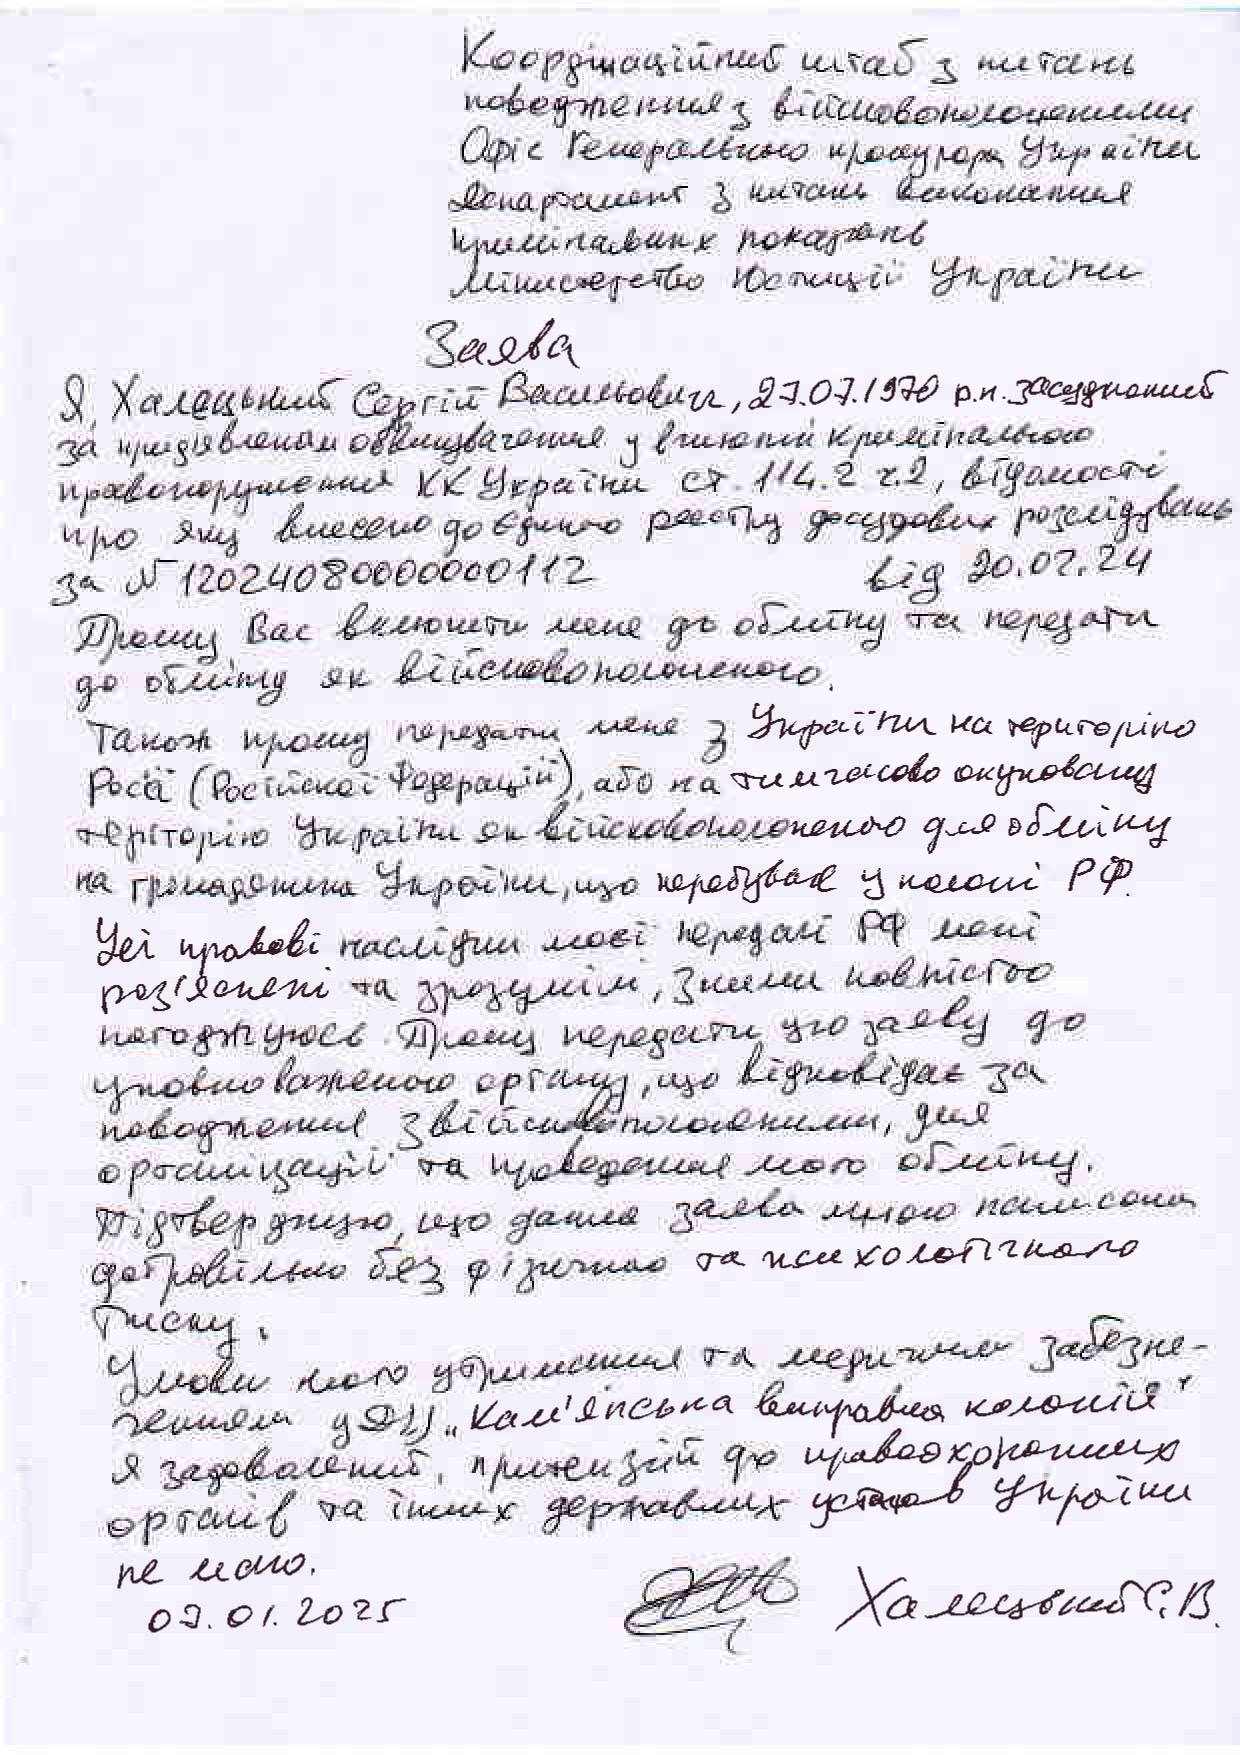 Координаційний штаб з питань
поводження з військовополоненими
Офіс Генерального прокурора України
Департамент з питань виконання
кримінальних покарань
Міністерство Юстиції України
Заява
Я, Халецький Сергій Васильович, 27.07.1970 р.н. засуджений
за пред'явленим обвинувачення у вчиненні кримінального
правопорушення КК України ст. 114.2 ч.2, відомості
про яку внесено до Єдиного реєстру досудових розслідувань
за № 12024080000000112 від 20.02.24
Прошу Вас включити мене до обміну та передати
до обміну як військовополоненого.
Також прошу передати мене з України на територію
Росії (Російської Федерацій), або на тимчасово окуповану
територію України як військовополоненого для обміну
на громадянина України, що перебуває у полоні РФ.
Усі правові наслідки моєї передачі РФ мені
роз'яснені та зрозумілі, з ними повністю
погоджуюсь. Прошу передати цю заяву до
уповноваженого органу, що відповідає за
поводження з військовополоненими, для
організації та проведення мого обміну.
Підтверджую, що данна заява мною написана
добровільно без фізичного та психологічного
тиску.
Умови мого утримання та медичним забезпе-
ченням у ДУ „Кам'янська виправна колонія"
я задоволений, притензій до правоохоронних
органів та інших державних установ України
не маю.
07.01.2025 Халецький С.В.